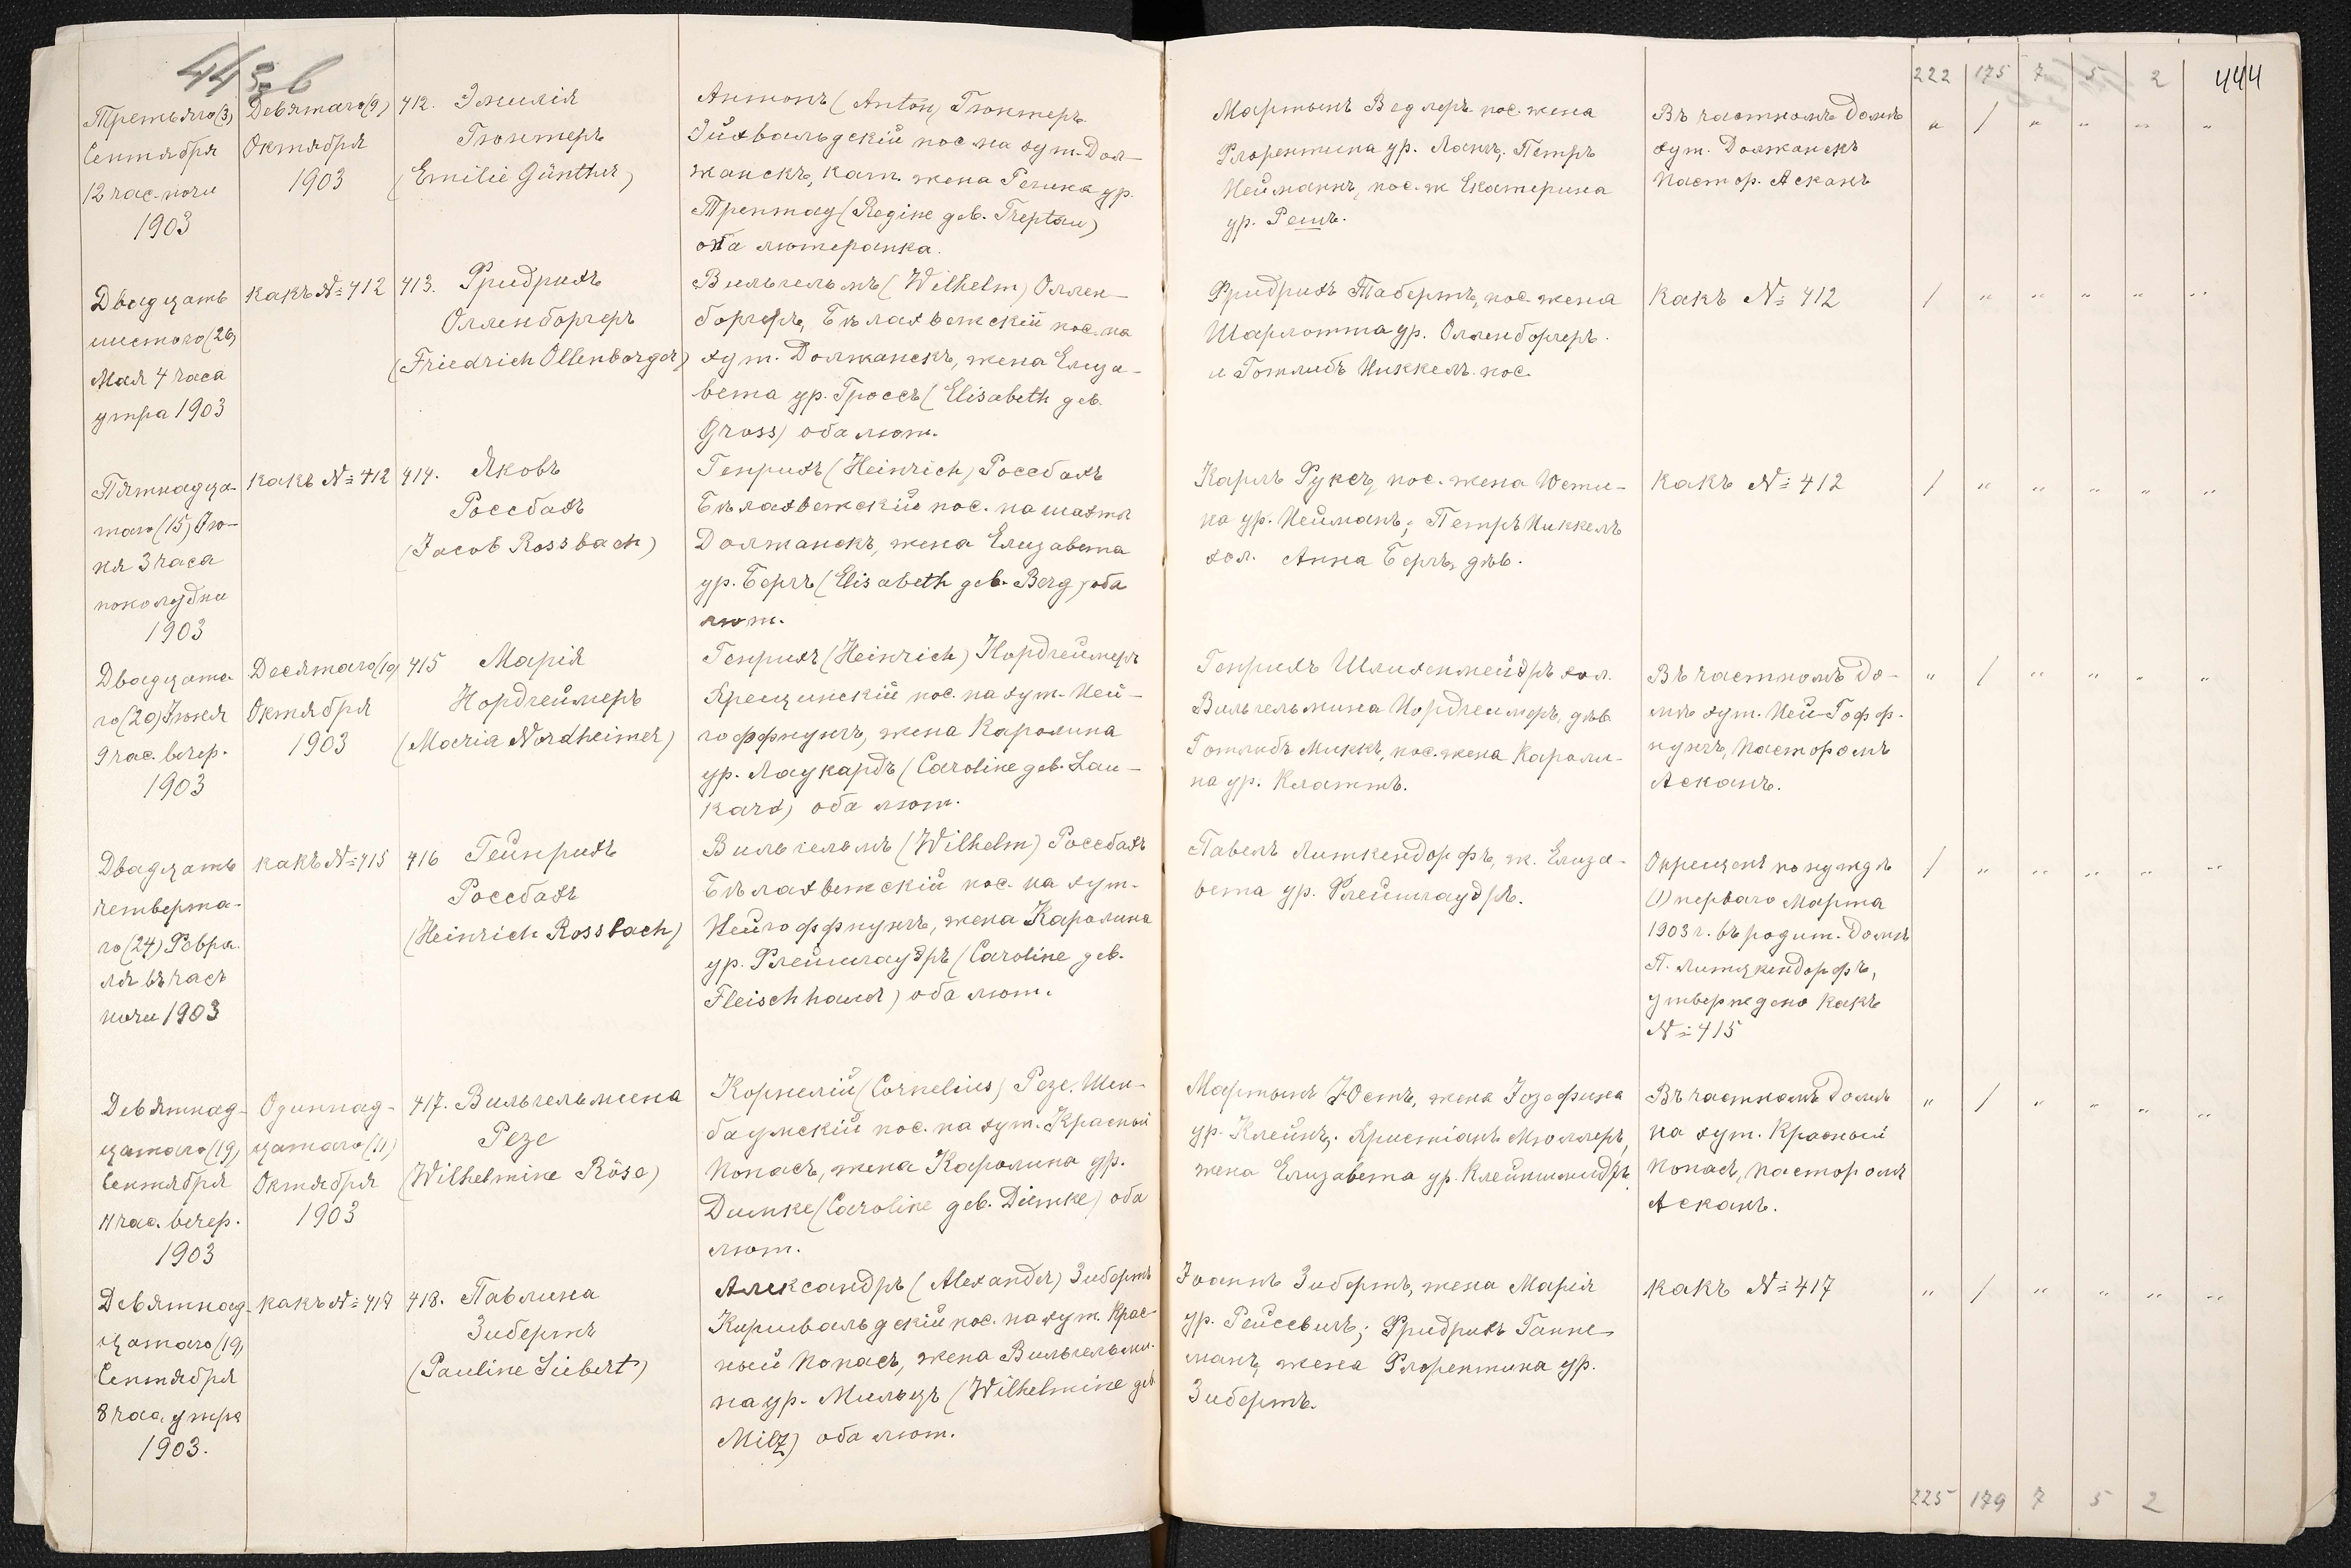 443 b
Третьяго (3)
Сентября
12 час. ночи
1903
Девятаго (9)
Октября
1903
412. Эмилія
Гюнтеръ
(Emilie Günther)
Антонъ (Anton) Гюнтеръ
Эйхвальдскій пос. на хут. Дол-
жанскъ, кат. жена Регина ур.
Трептау (Regine geb. Treptau)
она лютеранка.
Двадцать
шестого (26)
Мая 4 часа
утра 1903
какъ № 412
413. Фридрихъ
Олленборгеръ
(Friedrich Ollenborger)
Вильгельмъ (Wilhelm) Оллен-
боргеръ, Бѣлахвежскій пос. на
хут. Должанскъ, жена Елиза-
вета ур. Гроссъ (Elisabeth geb.
Gross) оба лют.
Пятнадца-
таго (15) Ію-
ня 3 часа
пополудни
1903
какъ № 412
414. Яковъ
Россбахъ
(Jacob Rossbach)
Генрихъ (Heinrich) Россбахъ
Бѣлахвежскій пос. на шахтѣ
Должанскъ, жена Елизавета
ур. Бергъ (Elisabeth geb. Berg) оба
лют.
Двадцата-
го (20) Іюня
9 час. вечер.
1903
Десятаго (10)
Октября
1903
415 Марія
Нордгеймеръ
(Maria Nordheimer)
Генрихъ (Heinrich) Нордгеймеръ
пос. на хут. Ней-
гоффнунгъ, жена Каролина
ур. Лаукардъ (Caroline geb. Lau-
kard) оба лют.
Двадцать
четверта-
го (24) Февра-
ля въ часъ
ночи 1903
какъ № 415
416 Гейнрихъ
Россбахъ
(Heinrich Rossbach)
Вильгельмъ (Wilhelm) Россбахъ
Бѣлахвежскій пос. на хут.
Нейгоффнунгъ, жена Каролина
ур. Флейшгауэръ (Caroline geb.
Fleischhauer) оба лют.
Девятнад-
цатаго (19)
Сентября
11 час. вечер.
1903
Одиннад-
цатаго (11)
Октября
1903
417. Вильгельмина
Резе
(Wilhelmine Röse)
Корнелій (Cornelius) Резе. Шен-
баумскій пос. на хут. Красный
Попасъ, жена Каролина ур.
Димке (Caroline geb. Diemke) оба
лют.
Девятнад-
цатаго (19)
Сентября
8 час. утра
1903.
какъ № 417
418. Павлина
Зибертъ
(Pauline Siebert)
Александръ (Alexander) Зибертъ
Киршвальдскій пос. на хут. Крас-
ный Попасъ, жена Вильгельми-
на ур. Мильцъ (Wilhelmine geb.
Milz) оба лют.
222 175 7 5 2 444
Мартынъ Ведлеръ пос. жена
Флорентина ур. Лангъ; Петръ
Нейманнъ, пос. ж. Екатерина
ур. Решъ.
Въ частномъ домѣ
хут. Должанскъ
Пастор. Асканъ
" / " " " "
Фридрихъ Табертъ, пос. жена
Шарлотта ур. Олленборгеръ.
и Готлибъ Никкель пос.
Какъ № 412
/ " " " " "
Карлъ Фуксъ, пос. жена Юсти-
на ур. Нейманъ; Петръ Никкель
хол. Анна Бергъ, дѣв.
Какъ № 412
/ " " " " "
Генрихъ Шлихенмейеръ хол.
Вильгельмина Нордгеймеръ, дѣв.
Готлибъ Миккъ, пос. жена Кароли-
на ур. Клаттъ.
Въ частномъ до-
мѣ хут. Ней-Гофф-
нунгъ, Пасторомъ
Асканъ.
" / " " " "
Павелъ Литкендорфъ, ж. Елиза-
вета ур. Флейшгауэръ.
Окрещенъ по нуждѣ
(1) перваго Марта
1903 г. въ родит. домѣ
П. Литцкендорфъ,
утверждено Какъ
№ 415
/ " " " " "
Мартынъ Юстъ, жена Іозефина
ур. Клейнъ; Христіанъ Мюллеръ,
жена Елизавета ур. Клейншмидтъ.
Въ частномъ домѣ
на хут. Красный
Попасъ, пасторомъ
Асканъ.
" / " " " "
Іоаннъ Зибертъ, жена Марія
ур. Фридрихъ Ганне-
манъ, жена Флорентина ур.
Зибертъ.
Какъ № 417
" / " " " "
225 179 7 5 2